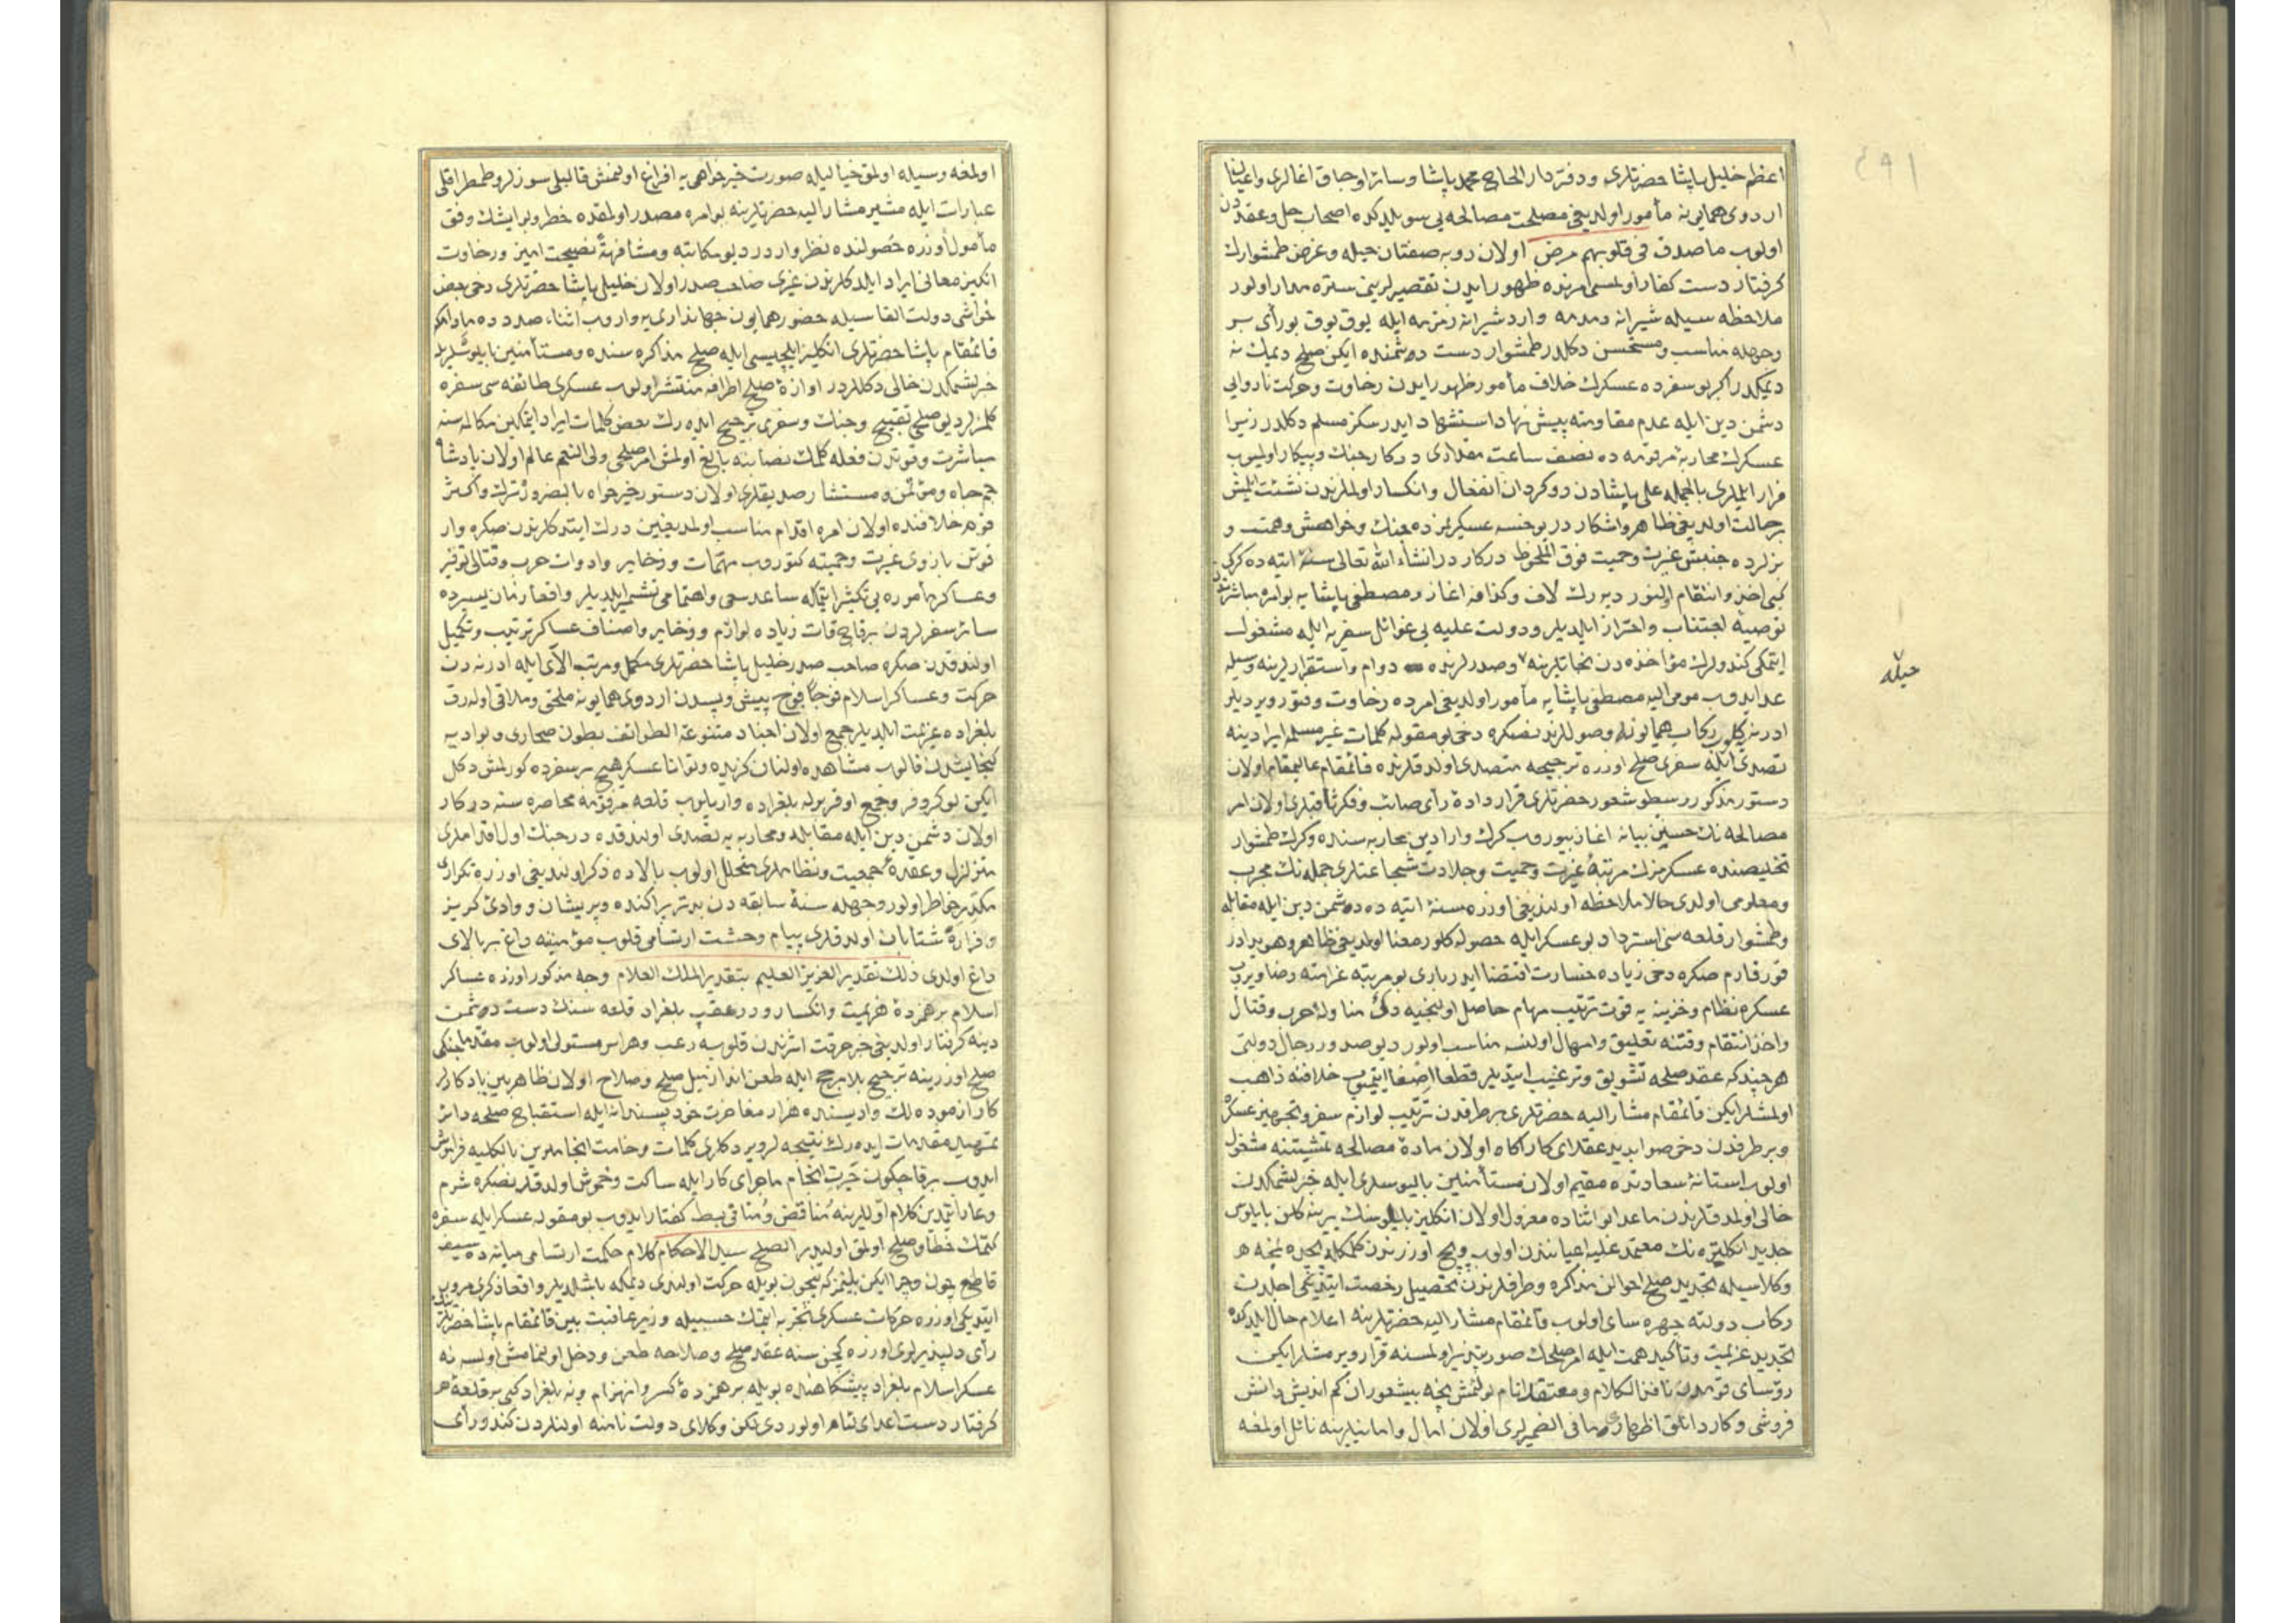 اعظم خلیل پاشا حضرتلری ودفتردار الحاج محمد پاشا وسائر اوجاق اغالری واعیان
اردوی همایونه مأمور اولدیغی مصلحت مصالحه یی سویلدکده اصحاب حل وعقددن
اولوب ماصدق فی قلوبهم مرض اولان روبه صفتان حیله وغرض طمشوارك
گرفتار دست كفار اولمسی امرنده ظهور ایدن تقصیرلرینی ستره مدار اولور
ملاحظه سیله شیرانه دمدمه وارد شیرانه زمزمه ایله یوق یوق بو رأی بر
وجهله مناسب ومستحسن دکلدر طمشوار دست دشمنده ایکن صلح دیمك نه
دیمکدر اگر بو سفرده عسکرك خلاف مأمور ظهور ایدن رخاوت وحرکت ناروالی
دشمن دین ایله عدم مقاومته پیش نهاد استشهاد ایدرسکز مسلم دکلدر زیرا
عسکرك محاربۀ مرقومه ده نصف ساعت مقداری درکار جنك وپیکار اولیوب
فرار ایلملری بالجمله علی پاشادن روگردان انفعال وانکسار اولملرندن نشئت ایلمش
بر حالت اولدیغی ظاهر واشکار در یوخسه عسکریمزده جنك وخواهش وهمت و
بزلرده جنبش غیرت وحمیت فوق الملحوظ درکار در انشاء الله تعالی سنۀ اتیه ده کرکی
کبی اخذ وانتقام اولنور دیه رك لاف وکذافه اغاز ومصطفی پاشایه بو امره مباشرتدن
توصیه اجتناب واحتراز ایلدیلر ودولت علیه یی غوائل سفریه ایله مشغول
ایتمکی کندولرك مؤاخذه دن نجاتلرینه وصدرلرنده دوام واستقرارلرینه وسیله
عد ایدوب مومی الیه مصطفی پاشایه مأمور اولدیغی امرده رخاوت وفتور ویردیلر
ادرنه یه کلوب رکاب همایونه وصوللرندنصکره دخی بو مقوله کلمات غیر مسلمه ایرادینه
تصدی ایله سفری صلح اوزره ترجیحه متصدی اولدقلرنده قائمقام عالیمقام اولان
دستور مذکور رسطو شعور حضرتلری قرار دادۀ رأی صائب وفکر ثاقبلری اولان امر
مصالحه نك حسنین بیانه اغاز بیوروب کرك وارادین محاربه سنده وکرك طمشوار
تخلیصنده عسکرمزك مرتبۀ غیرت وحمیت وجلادت شجاعتلری جمله نك مجرب
ومعلومی اولدی حالا ملاحظه اولندیغی اوزره سنۀ اتیه ده دشمن دین ایله مقابله
وطمشوار قلعه سنی استرداد بو عسکر ایله حصوله کلور معنا اولمدیغی ظاهر وهویدادر
قورقارم صکره دخی زیاده خسارت اقتضا ایدر باری بو مرتبه غرامته رضا ویروب
عسکره نظام وخزینه یه قوت ترتیب مهام حاصل اولنجیه دکین مناولۀ حرب وقتال
واخذ انتقام وقتنه تعلیق وامهال اولنسه مناسب اولور دیو صدور رجال دولتی
هرچند که عقد صلحه تشویق وترغیب ایتدیلر قطعا اصغا ایتمیوب خلافنه ذاهب
اولمشلر ایکن قائمقام مشار الیه حضرتلری بر طرفدن ترتیب لوازم سفر وتجهیز عسکر
وبر طرفدن دخی صوابدید عقلای کار آکاه اولان مادۀ مصالحه تمشیتنه مشغول
اولوب استانۀ سعادتده مقیم اولان مستأمنین بالیوسلری ایله خبرلشمکدن
خالی اولمدقلرندن ماعدا بو اثناده معزول اولان انکلیز بالیوسنك یرینه کلن بالیوس
جدید انکلتره نك معتمد علیه اعیانندن اولوب وبچ اوزرندن کلمکله نجه نجه هر
وکلاسیله تجدید صلح احوالن مذاکره وطرفلرندن تحصیل رخصت ایتدیکی اجلدن
رکاب دولته چهره سای اولوب قائمقام مشار الیه حضرتلرینه اعلام حال ایلدکده
تجدید عزیمت وتأکید همت ایله امر صلحك صورتپذیر اولمسنه قرار ویرمشلر ایکن
رؤسای قومدن نافذ الکلام ومعتقد انام بولنمش نجه بیشعوران کم اندیش دانش
فروشی وکاردانلق اظهاری مافی الضمیرلری اولان آمال وامانیلرینه نائل اولمغه
حیله
اولمغه وسیله اولمق خیالیله صورت خیرخواهی یه افراغ اولنمش قالبلی سوزلر وطمطراقلی
عبارات ایله مشیر مشار الیه حضرتلرینه بو امره مصدر اولمقده خطر وبر ایشك وفق
مأمول اوزره حصولنده نظر واردر دیو مکاتبه ومشافهةً نصیحت امیز ورخاوت
انکیز معانی ایراد ایلدکلرندن غیری صاحب صدر اولان خلیل پاشا حضرتلری دخی بعض
خواشی دولت القاسیله حضور همایون جهانداری یه واروب اثناء صددده مادامکه
قائمقام پاشا حضرتلری انکلیز ایلچیسی ایله صلح مذاکره سنده ومستأمنین بالیوسلریله
خبرلشمکدن خالی دکللردر اوازۀ صلح اطرافه منتشر اولوب عسکری طائفه سی سفره
کلمزلر دیو صلحی تقبیح وجنك وسفری ترجیح ایده رك بعض کلمات ایراد ایتمکین مکالمه سنه
مباشرت وقوتدن فعله کلمك نصابنه بالغ اولمش امر صلحی ولی النعم عالم اولان پادشاه
جم جاه ومؤتمن ومستشار صدیقلری اولان دستور خیرخواه بالضروره ترك واکثر
قومه خلافنده اولان امره اقدام مناسب اولمدیغین درك ایتدکلرندن صکره وار
قوتن بازوی غیرت وحمیته کتوروب مهمات وذخایر وادوات حرب وقتالی توفیر
وعساکر مأموره یی تکثیر ایتمکله ساعد سعی واهتمامی تشمیر ایلدیلر واقعا زمان یسیرده
سائر سفرلردن برقاچ قات زیاده لوازم وذخایر واصناف عساکر ترتیب وتکمیل
اولندقدن صکره صاحب صدر خلیل پاشا حضرتلری مکمل ومرتب آلای ایله ادرنه دن
حرکت وعساکر اسلام فوجاً فوج پیش وپسدن اردوی همایونه ملحق وملاقی اوله رق
بلغراده عزیمت ایلدیلر جمع اولان اجناد متنوعة الطوائف بطون صحاری وبوادیه
کنجایشدن قالوب مشاهده اولنان کزیده وتوانا عسکر هیچ بر سفرده کورلمش دکل
ایکن بو کروفر وتجمع اوفر بوله بلغراده واریلوب قلعه مرقومه محاصره سنه درکار
اولان دشمن دین ایله مقابله ومحاربه یه تصدی اولندقده در جنك اول اقداملری
متزلزل وعقدۀ جمعیت ونظاملری منحلل اولوب بالاده ذکر اولندیغی اوزره تکراری
مکدر خواطر اولور وجهله سنۀ سابقه دن بدتر پراکنده وپریشان ووادئ کریز
وفراره شتابان اولدقلری پیام وحشت ارتسامی قلوب مؤمنینه داغ بربالای
داغ اولدی ذلك تقدیر العزیز العلیم بتقدیر الملك العلام وجه مذکور اوزره عساکر
اسلام برهمزدۀ هزیمت وانکسار ودرعقب بلغراد قلعه سنك دست دشمن
دینه گرفتار اولدیغی خبر حرقت اثرندن قلوبه رعب وهراس مستولی اولوب مقدما جنکی
صلح اوزرینه ترجیح بلامرجح ایله طعن انداز نبیل صلح وصلاح اولان ظاهربین یادکارلر
کارازموده لك وادیسنده هزار مفاخرت خودپسندانه ایله استقباح صلحه دائر
تمهید مقدمات ایده رك نتیجه لر ویردکلری کلمات وخامت انجاملرین بالکلیه فراموش
ایدوب برقاج کون حیرت انجام ماجرای کار ایله ساکت وخموش اولدقلرندنصکره شرم
وعار ایتمدین کلام اوللرینه مناقض ومنافی بسط کفتار ایدوب بو مقوله عسکر ایله سفره
کتمك خطا وصلح اولمق اولیدیر الصلح سید الاحکام کلام حکمت ارتسامی میانه ده سیف
قاطع چون وچرا ایکن بلنمزکه نیچون بویله حرکت اولندی دیمکه باشلدیلر واقعا ذکری مرور
ایتدیکی اوزره حرکات عسکری تجربه ایتمك حسبیله وزیر عاقبت بین قائمقام پاشا حضرتلرینك
رأی دلپذیرلری اوزره کچن سنه عقد صلح وصلاحه طعن ودخل اولنمامش اولسه نه
عسکر اسلام بلغراد پیشکاهنده بویله برهمزدۀ کسر وانهزام ونه بلغراد کبی بر قلعۀ
گرفتار دست اعدای لئام اولوردی لکن وکلای دولت نامنه اولنلردن کندو رأی